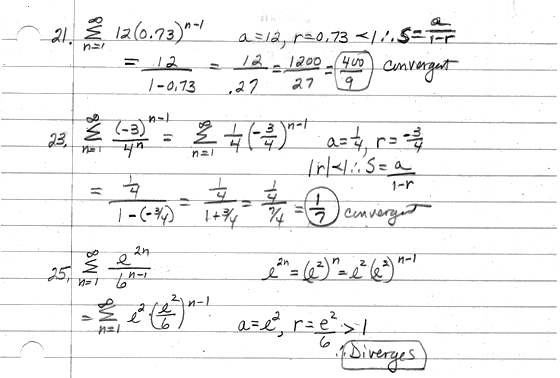 21. ∞∑n=1 12(0.73)^(n-1) a=12, r=0.73 <1 ∴ S= a/(1-r)
= 12/(1-0.73) = 12/.27 = 1200/27 = 400/9 convergent
23. ∞∑n=1 (-3)^(n-1)/4^n = ∞∑n=1 1/4(-3/4)^(n-1) a=1/4, r=-3/4
|r|<1 ∴ S= a/(1-r)
= (1/4)/(1-(-3/4)) = (1/4)/(1+3/4) = (1/4)/(7/4) = 1/7 convergent
25. ∞∑n=1 e^(2n)/6^(n-1) e^(2n) = (e^2)^n = e^2(e^2)^(n-1)
= ∞∑n=1 e^2·(e^2/6)^(n-1) a=e^2, r= e^2/6 >1
∴ Diverges